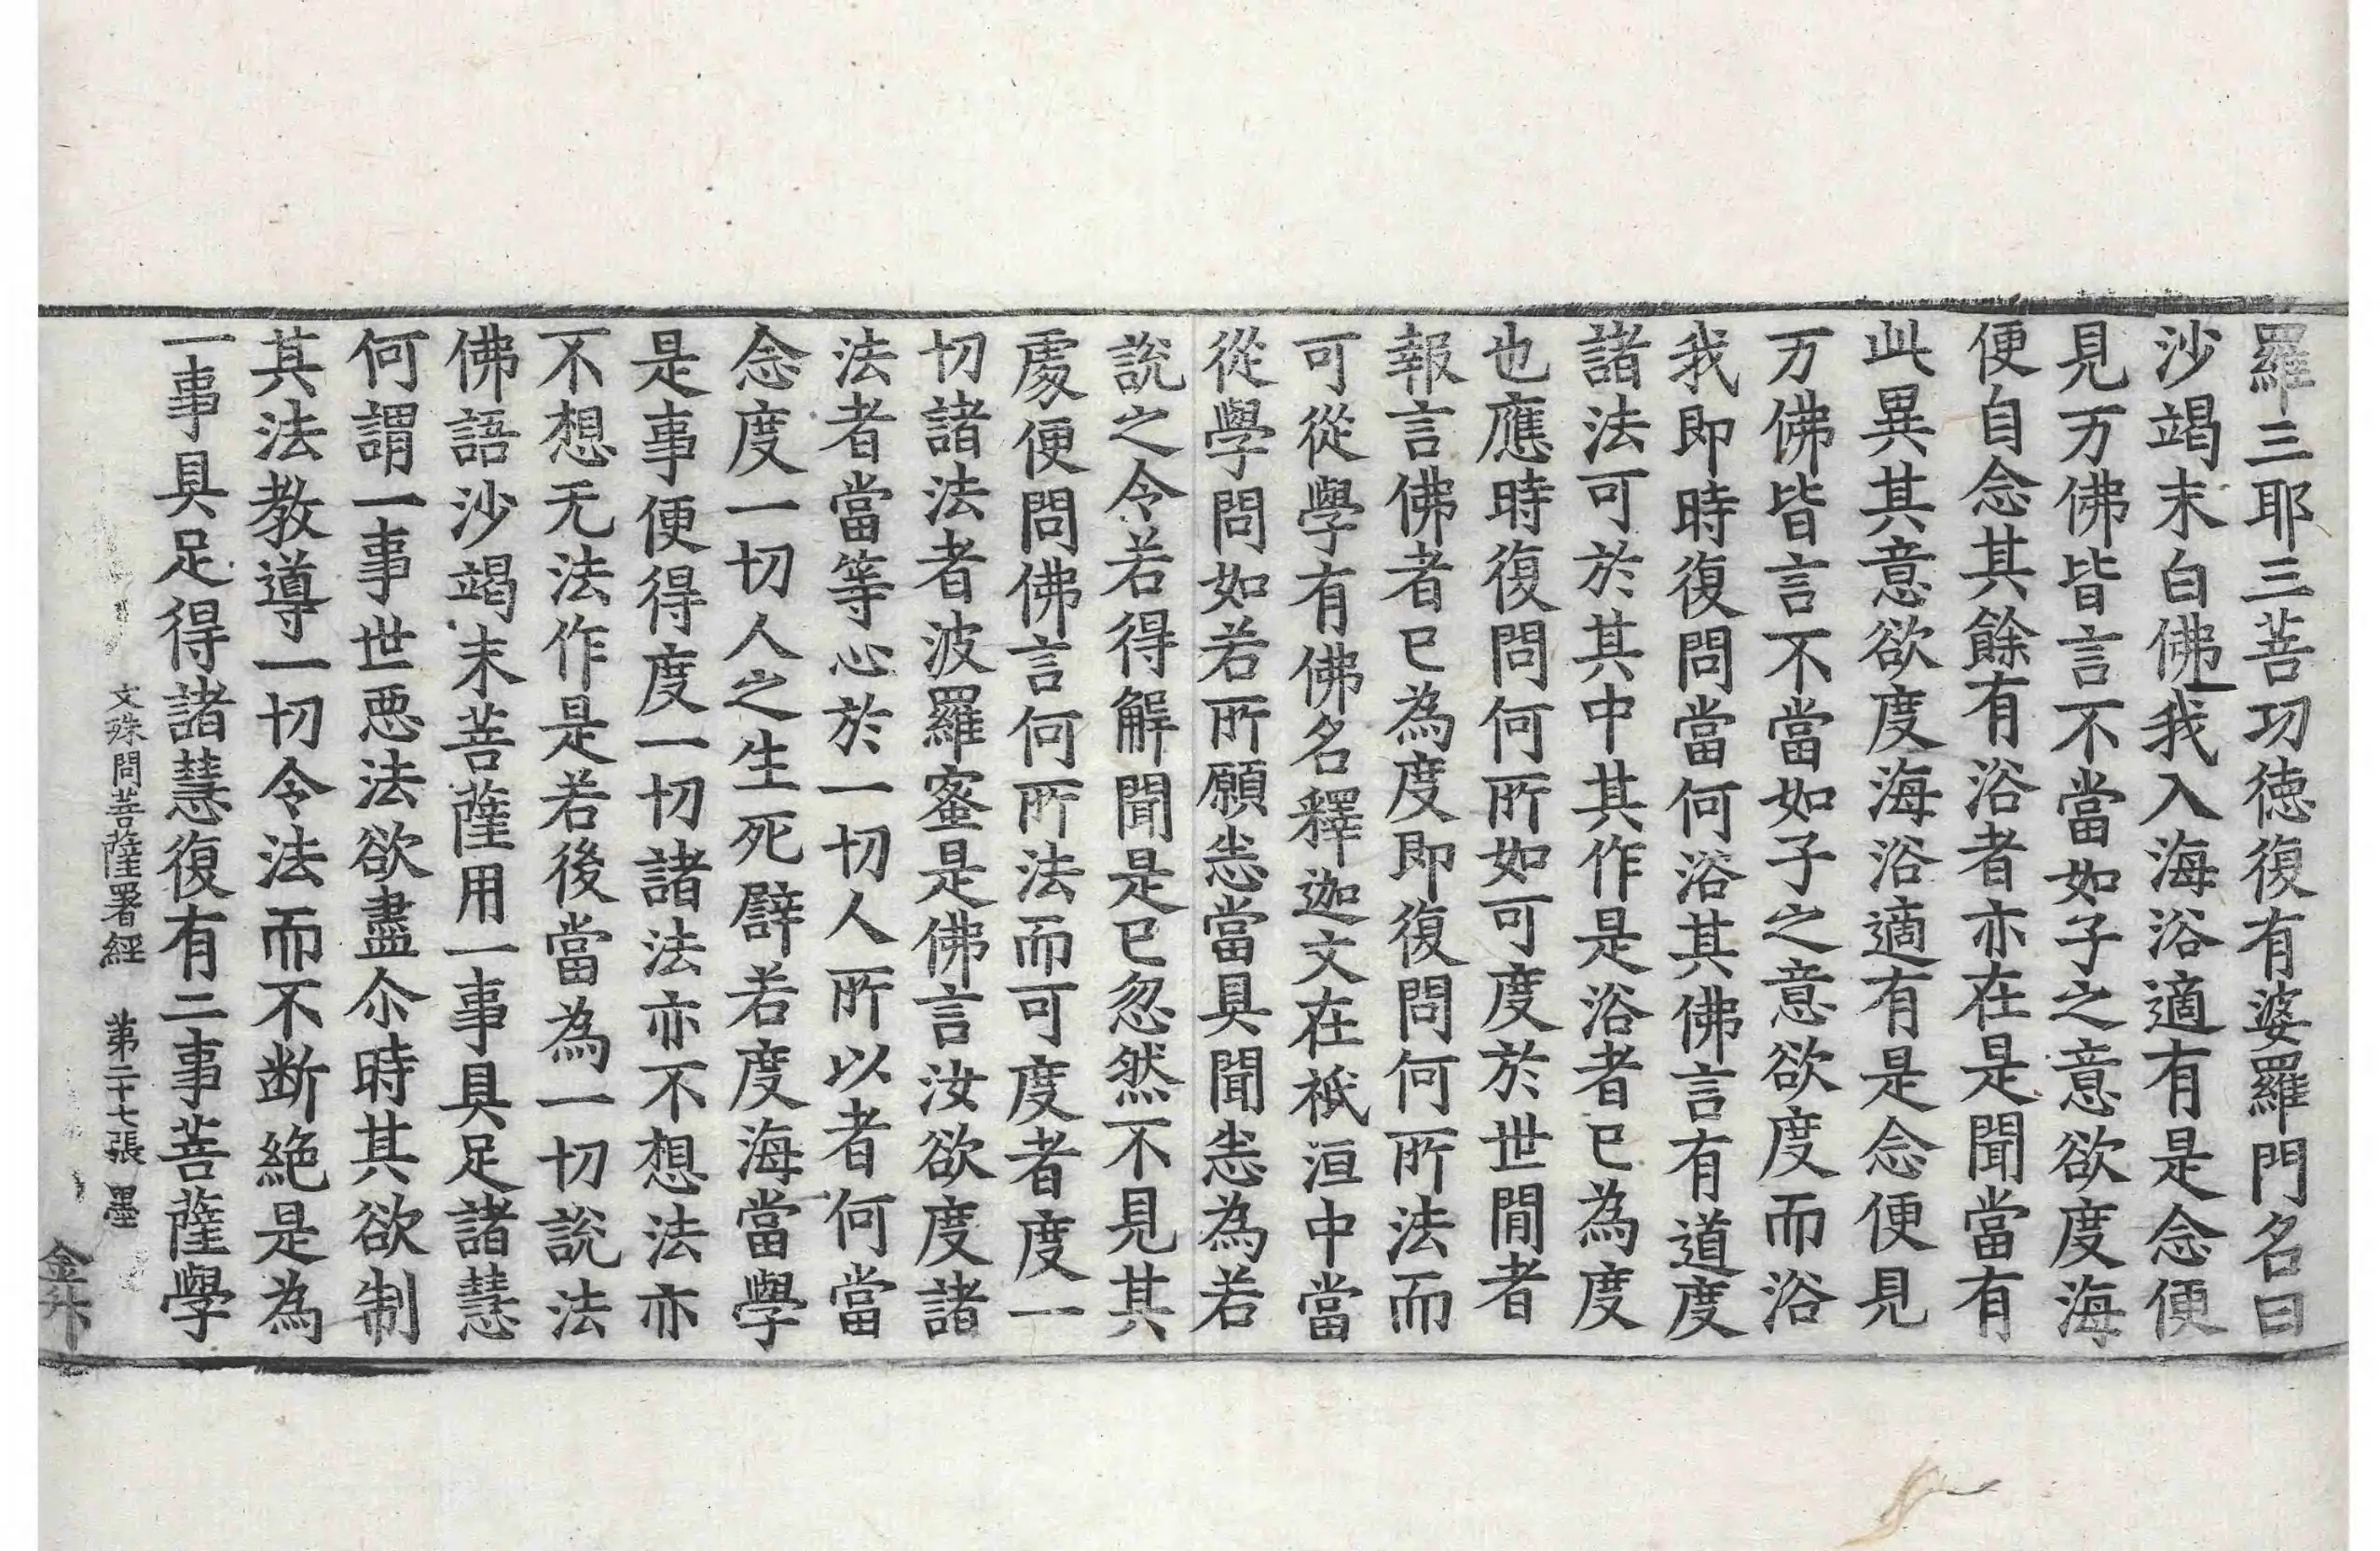 羅三耶三菩功徳復有婆羅門名曰
沙竭末白佛我入海浴適有是念便
見万佛皆言不當如子之意欲度海
便自念其餘有浴者亦在是聞當有
此異其意欲度海浴適有是念便見
万佛皆言不當如子之意欲度而浴
我即時復問當何浴其佛言有道度
諸法可於其中其作是浴者已為度
也應時復問何所如可度於世閒者
報言佛者已為度即復問何所法而
可從學有佛名釋迦文在祇洹中當
從學問如若所願恙當具聞恙為若
說之令若得解聞是已忽然不見其
處便問佛言何所法而可度者度一
切諸法者波羅蜜是佛言汝欲度諸
法者當等心於一切人所以者何當
念度一切人之生死譬若度海當學
是事便得度一切諸法亦不想法亦
不想无法作是若後當為一切說法
佛語沙竭末菩薩用一事具足諸慧
何謂一事世惡法欲盡尒時其欲制
其法教導一切令法而不断絶是為
一事具足得諸慧復有二事菩薩學
文殊問菩薩署經 第二十七張 墨
金升